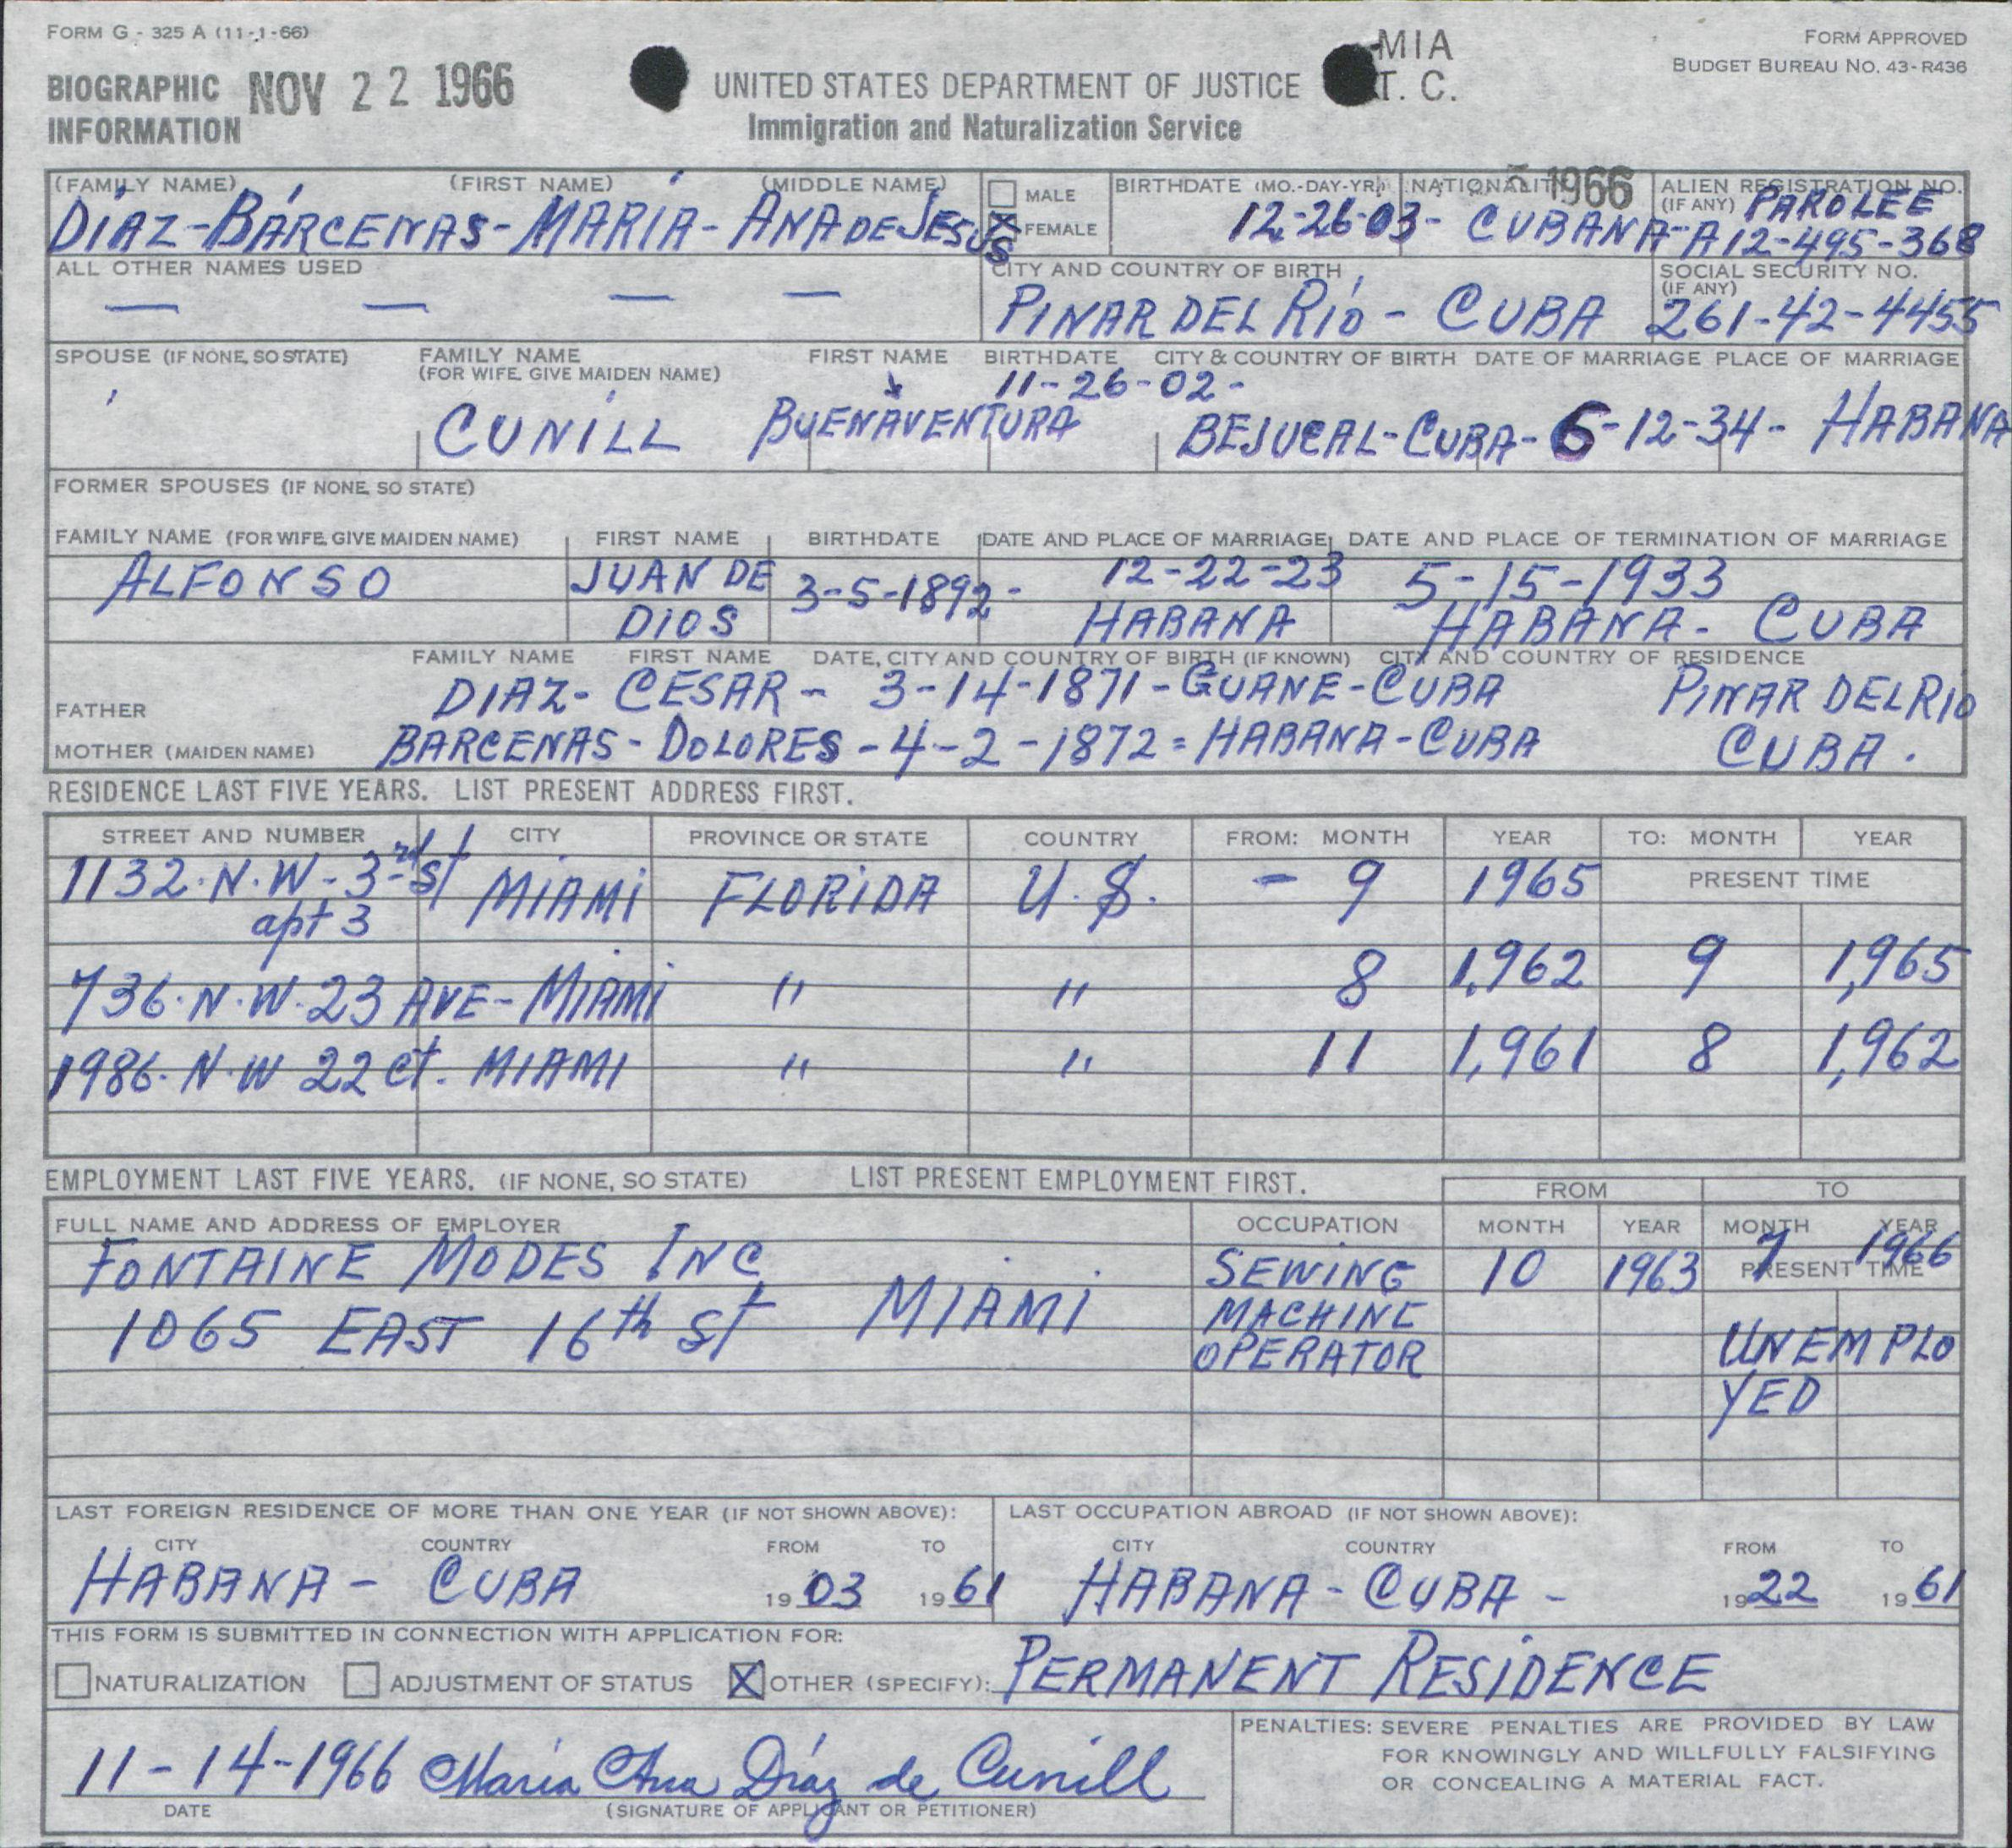 FORM G - 325 A (11-1-66)
FORM APPROVED
BUDGET BUREAU NO. 43-R436
BIOGRAPHIC INFORMATION
NOV 22 1966
UNITED STATES DEPARTMENT OF JUSTICE
Immigration and Naturalization Service
MIA
T. C.
(FAMILY NAME) (FIRST NAME) (MIDDLE NAME)
DÍAZ-BÁRCENAS-MARÍA-ANA DE JESUS
MALE
X FEMALE
BIRTHDATE (MO.-DAY-YR.) NATIONALITY
1966
12-26-03- CUBANA-
ALIEN REGISTRATION NO. (IF ANY)
PAROLEE
A12-495-368
ALL OTHER NAMES USED
— — — —
CITY AND COUNTRY OF BIRTH
PINAR DEL RÍO - CUBA
SOCIAL SECURITY NO. (IF ANY)
261-42-4455
SPOUSE (IF NONE, SO STATE) FAMILY NAME (FOR WIFE, GIVE MAIDEN NAME) FIRST NAME BIRTHDATE CITY & COUNTRY OF BIRTH DATE OF MARRIAGE PLACE OF MARRIAGE
11-26-02-
CUNILL BUENAVENTURA BEJUCAL-CUBA- 6-12-34- HABANA
FORMER SPOUSES (IF NONE, SO STATE)
FAMILY NAME (FOR WIFE, GIVE MAIDEN NAME) FIRST NAME BIRTHDATE DATE AND PLACE OF MARRIAGE DATE AND PLACE OF TERMINATION OF MARRIAGE
ALFONSO JUAN DE 3-5-1892- 12-22-23 5-15-1933
DIOS HABANA HABANA- CUBA
FAMILY NAME FIRST NAME DATE, CITY AND COUNTRY OF BIRTH (IF KNOWN) CITY AND COUNTRY OF RESIDENCE
FATHER DIAZ- CESAR- 3-14-1871-GUANE-CUBA PINAR DEL RIO
MOTHER (MAIDEN NAME) BARCENAS-DOLORES-4-2-1872=HABANA-CUBA CUBA.
RESIDENCE LAST FIVE YEARS. LIST PRESENT ADDRESS FIRST.
STREET AND NUMBER CITY PROVINCE OR STATE COUNTRY FROM: MONTH YEAR TO: MONTH YEAR
1132.N.W-3rd-St MIAMI FLORIDA U.S. - 9 1965 PRESENT TIME
apt 3
736.N.W.23 AVE-MIAMI " " 8 1,962 9 1,965
1986.N.W 22 Ct. MIAMI " " 11 1,961 8 1,962
EMPLOYMENT LAST FIVE YEARS. (IF NONE, SO STATE) LIST PRESENT EMPLOYMENT FIRST.
FROM TO
FULL NAME AND ADDRESS OF EMPLOYER OCCUPATION MONTH YEAR MONTH YEAR
FONTAINE MODES INC SEWING 10 1963 7 1966
PRESENT TIME
1065 EAST 16th St MIAMI MACHINE
OPERATOR UNEMPLO
YED
LAST FOREIGN RESIDENCE OF MORE THAN ONE YEAR (IF NOT SHOWN ABOVE): LAST OCCUPATION ABROAD (IF NOT SHOWN ABOVE):
CITY COUNTRY FROM TO CITY COUNTRY FROM TO
HABANA - CUBA 19 03 19 61 HABANA - CUBA - 19 22 19 61
THIS FORM IS SUBMITTED IN CONNECTION WITH APPLICATION FOR:
NATURALIZATION ADJUSTMENT OF STATUS X OTHER (SPECIFY): PERMANENT RESIDENCE
11-14-1966 María Ana Díaz de Cunill
DATE (SIGNATURE OF APPLICANT OR PETITIONER)
PENALTIES: SEVERE PENALTIES ARE PROVIDED BY LAW
FOR KNOWINGLY AND WILLFULLY FALSIFYING
OR CONCEALING A MATERIAL FACT.